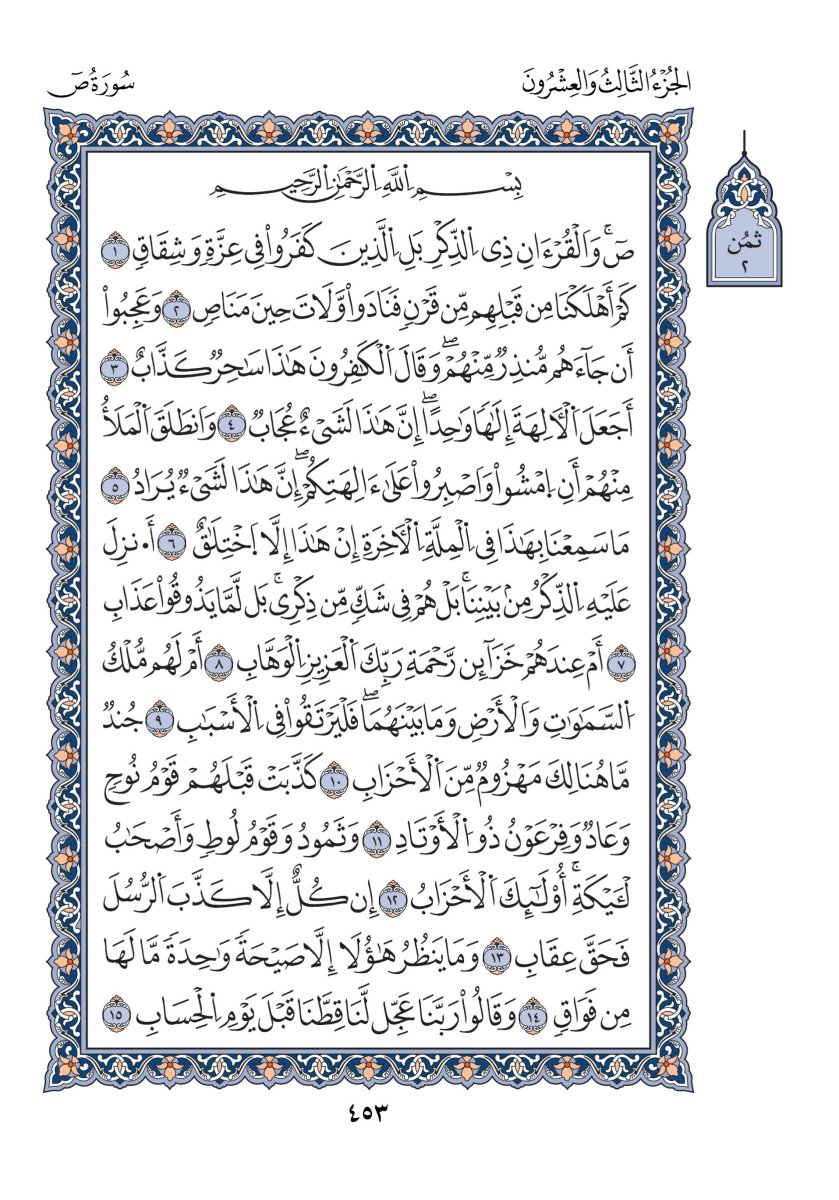 الجُزْءُ الثَّالِثُ وَالعِشْرُونَ
سُورَةُ صٓ
ثمُن
٢
بِسْمِ اِللَّهِ اِلرَّحْمَٰنِ اِلرَّحِيمِ
صٓۚ وَالْقُرْءَانِ ذِى اِلذِّكْرِ بَلِ اِلذِينَ كَفَرُواْ فِى عِزَّةٖ وَشِقَاقٖ ١
كَمْ أَهْلَكْنَا مِن قَبْلِهِم مِّن قَرْنٖ فَنَادَواْ وَّلَاتَ حِينَ مَنَاصٖ ٢ وَعَجِبُواْ
أَن جَآءَهُم مُّنذِرٞ مِّنْهُمْۖ وَقَالَ اَلْكَٰفِرُونَ هَٰذَا سَٰحِرٞ كَذَّابٌ ٣
أَجَعَلَ اَلْأٓلِهَةَ إِلَٰهٗا وَٰحِداًۖ إِنَّ هَٰذَا لَشَىْءٌ عُجَابٞ ٤ وَانطَلَقَ اَلْمَلَأُ
مِنْهُمْ أَنِ اِمْشُواْ وَاصْبِرُواْ عَلَىٰٓ ءَالِهَتِكُمْۖ إِنَّ هَٰذَا لَشَىْءٞ يُرَادُ ٥
مَا سَمِعْنَا بِهَٰذَا فِى اِلْمِلَّةِ اِلْأٓخِرَةِ إِنْ هَٰذَا إِلَّا اَخْتِلَٰقٌ ٦ أَ.نزِلَ
عَلَيْهِ اِلذِّكْرُ مِنۢ بَيْنِنَاۚ بَلْ هُمْ فِى شَكّٖ مِّن ذِكْرِىۚ بَل لَّمَّا يَذُوقُواْ عَذَابِ
٧ أَمْ عِندَهُمْ خَزَآئِن رَّحْمَةِ رَبِّكَ اَلْعَزِيزِ اِلْوَهَّابِ ٨ أَمْ لَهُم مُّلْكُ
اُلسَّمَٰوَٰتِ وَالْأَرْضِ وَمَا بَيْنَهُمَاۖ فَلْيَرْتَقُواْ فِى اِلْأَسْبَٰبِ ٩ جُندٞ
مَّا هُنَالِكَ مَهْزُومٞ مِّنَ اَلْأَحْزَابِ ١٠ كَذَّبَتْ قَبْلَهُمْ قَوْمُ نُوحٖ
وَعَادٞ وَفِرْعَوْنُ ذُو اُلْأَوْتَادِ ١١ وَثَمُودُ وَقَوْمُ لُوطٖ وَأَصْحَٰبُ
لَـَٔيْكَةِۚ أُوْلَٰٓئِكَ اَلْأَحْزَابُ ١٢ إِن كُلٌّ إِلَّا كَذَّبَ اَلرُّسُلَ
فَحَقَّ عِقَابِ ١٣ وَمَا يَنظُرُ هَٰؤُلَا إِلَّا صَيْحَةٗ وَٰحِدَةٗ مَّا لَهَا
مِن فَوَاقٖ ١٤ وَقَالُواْ رَبَّنَا عَجِّل لَّنَا قِطَّنَا قَبْلَ يَوْمِ اِلْحِسَابِ ١٥
٤٥٣